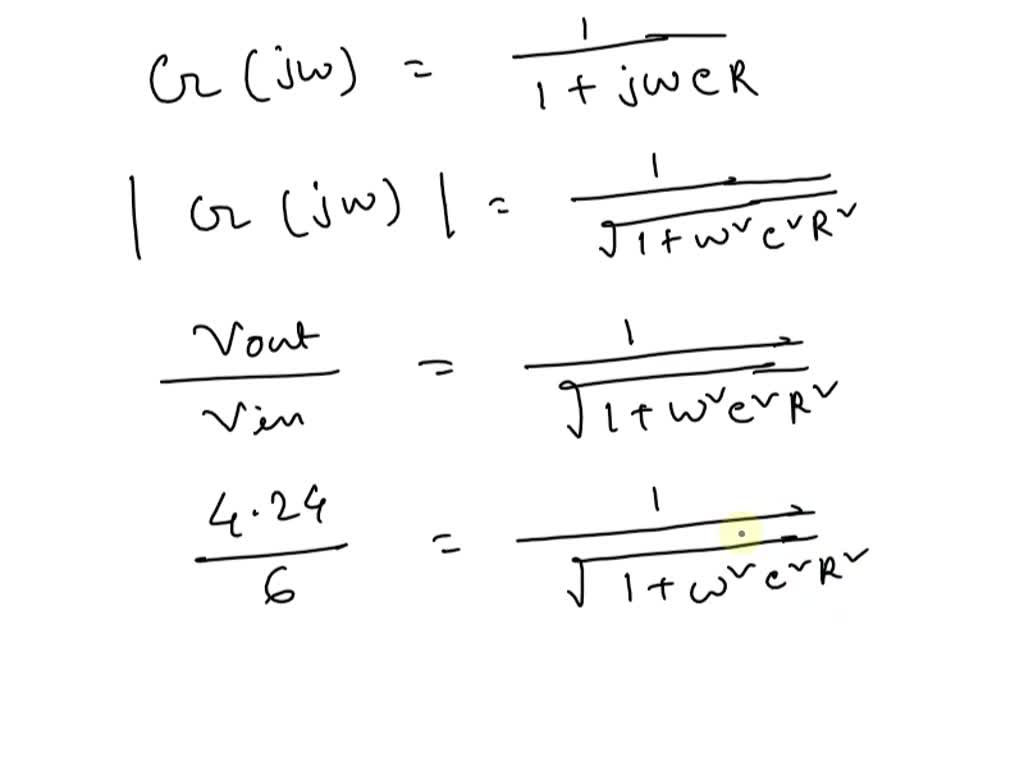 G(jω) = 1 / (1 + jωCR)
|G(jω)| = 1 / √(1 + ω²C²R²)
Vout / Vin = 1 / √(1 + ω²C²R²)
4.24 / 6 = 1 / √(1 + ω²C²R²)